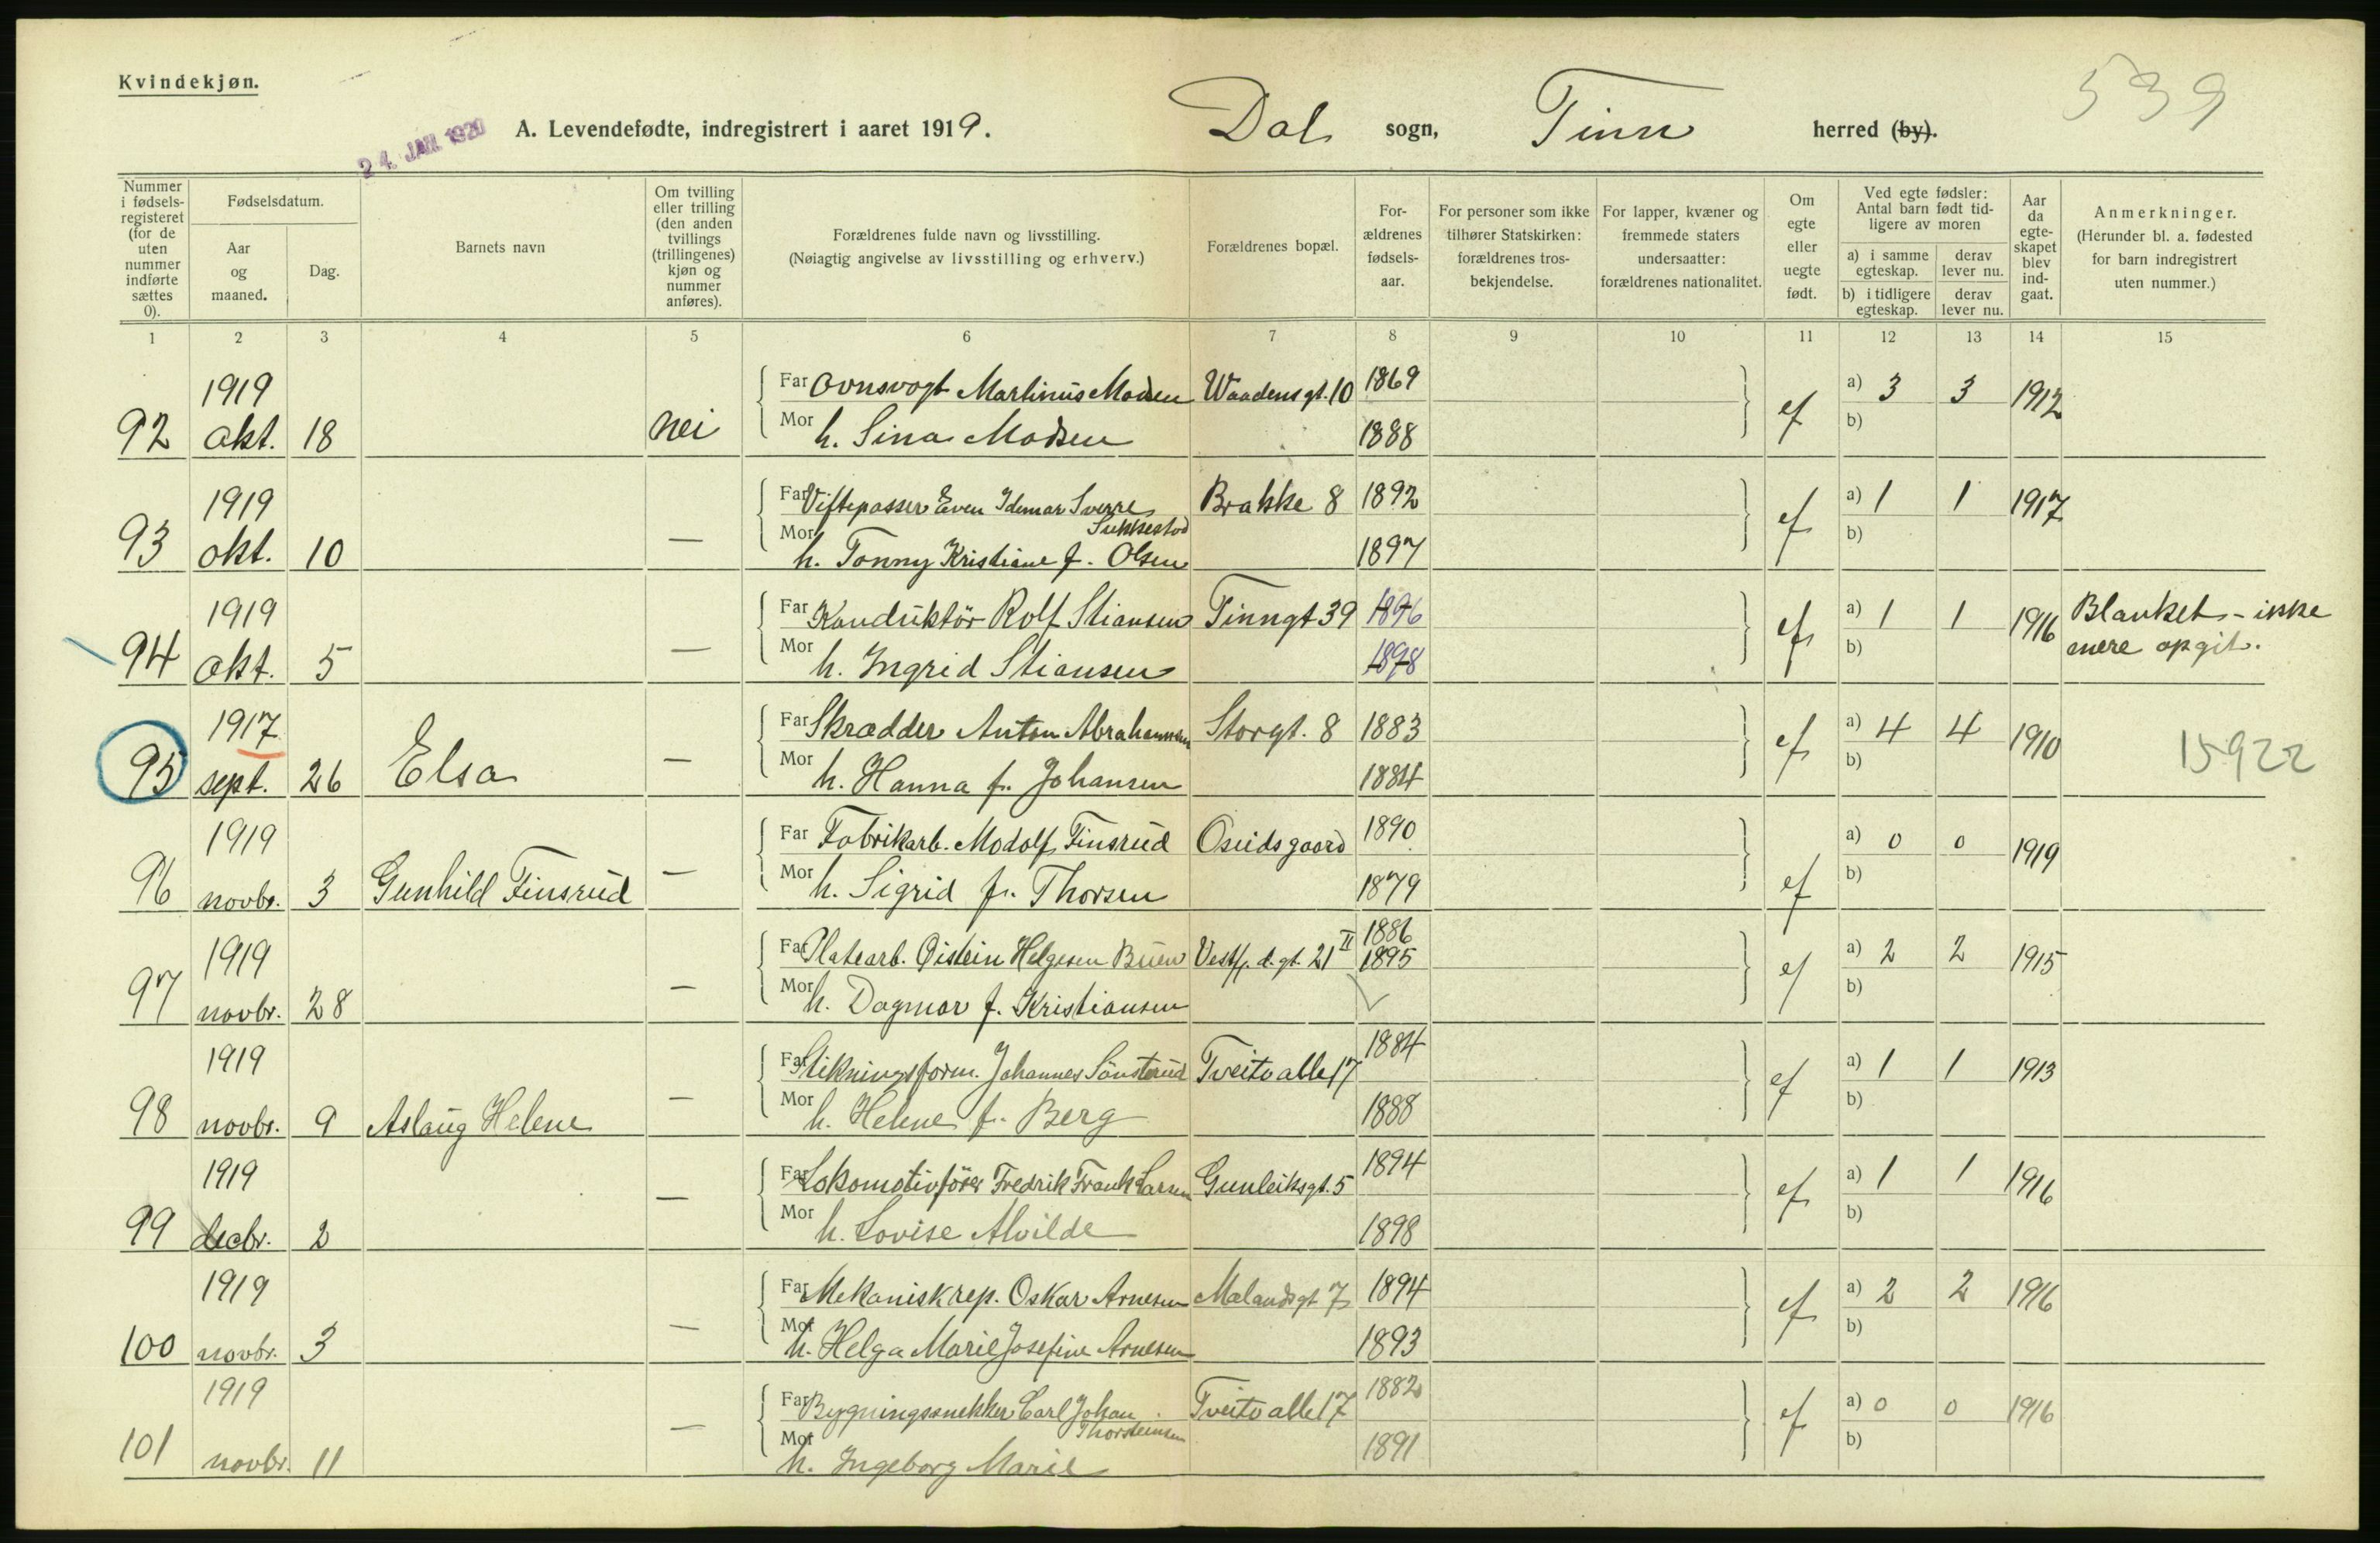 Kvindekjøn.
539
24. JAN. 1920
A. Levendefødte, indregistrert i aaret 1919. Dal sogn, Tinn herred (by).
Nummer i fødselsregisteret (for de uten nummer indførte sættes 0).
Fødselsdatum.
Aar og maaned.
Dag.
Barnets navn
Om tvilling eller trilling (den anden tvillings (trillingenes) kjøn og nummer anføres).
Forældrenes fulde navn og livsstilling.
(Nøiagtig angivelse av livsstilling og erhverv.)
Forældrenes bopæl.
Forældrenes fødselsaar.
For personer som ikke tilhører Statskirken: forældrenes trosbekjendelse.
For lapper, kvæner og fremmede staters undersaatter: forældrenes nationalitet.
Om egte eller uegte født.
Ved egte fødsler: Antal barn født tidligere av moren
a) i samme egteskap. derav lever nu.
b) i tidligere egteskap. derav lever nu.
Aar da egteskapet blev indgaat.
Anmerkninger.
(Herunder bl. a. fødested for barn indregistrert uten nummer.)
1 2 3 4 5 6 7 8 9 10 11 12 13 14 15
1919 Far Ovnsvogt Martinus Madsen Waadensgt. 10 1869 a) 3 3 1912
92 okt. 18 nei Mor h. Sina Madsen 1888 ef b)
1919 Far Viftepasser Even Idemar Sverre Brakke 8 1892 a) 1 1 1917
Sukkestad
93 okt. 10 — Mor h. Tonny Kristiane f. Olsen 1897 ef b)
1919 Far Konduktör Rolf Stiansen Tinngt 39 1896 a) 1 1 1916 Blanket - ikke
94 okt. 5 — Mor h. Ingrid Stiansen 1898 ef b) mere opgit.
1917 Far Skrædder Anton Abrahamsen Storgt. 8 1883 a) 4 4 1910 15922
95 sept. 26 Elsa — Mor h. Hanna f. Johansen 1884 ef b)
1919 Far Fabrikarb. Modolf Finsrud Oseidsgaard 1890 a) 0 0 1919
96 novbr. 3 Gunhild Finsrud — Mor h. Sigrid f. Thorsen 1879 ef b)
1919 Far Platearb. Øistein Helgesen Buen Vestfj.d.gt. 21 II 1886 1895 a) 2 2 1915
97 novbr. 28 — Mor h. Dagmar f. Kristiansen ef b)
1919 Far Stikningsform. Johannes Sönsterud Tveito alle 17 1884 a) 1 1 1913
98 novbr. 9 Aslaug Helene — Mor h. Helene f. Berg 1888 ef b)
1919 Far Lokomotivförer Fredrik Frank Larsen Gunleiksgt. 5 1894 a) 1 1 1916
99 decbr. 2 — Mor h. Lovise Alvilde 1898 ef b)
1919 Far Mekanisk rep. Oskar Arnesen Malandsgt 7 1894 a) 2 2 1916
100 novbr. 3 — Mor h. Helga Marie Josefine Arnesen 1893 ef b)
1919 Far Bygningssnekker Carl Johan Tveito alle 17 1882 a) 0 0 1916
Thorsteinsen
101 novbr. 11 — Mor h. Ingeborg Marie 1891 ef b)